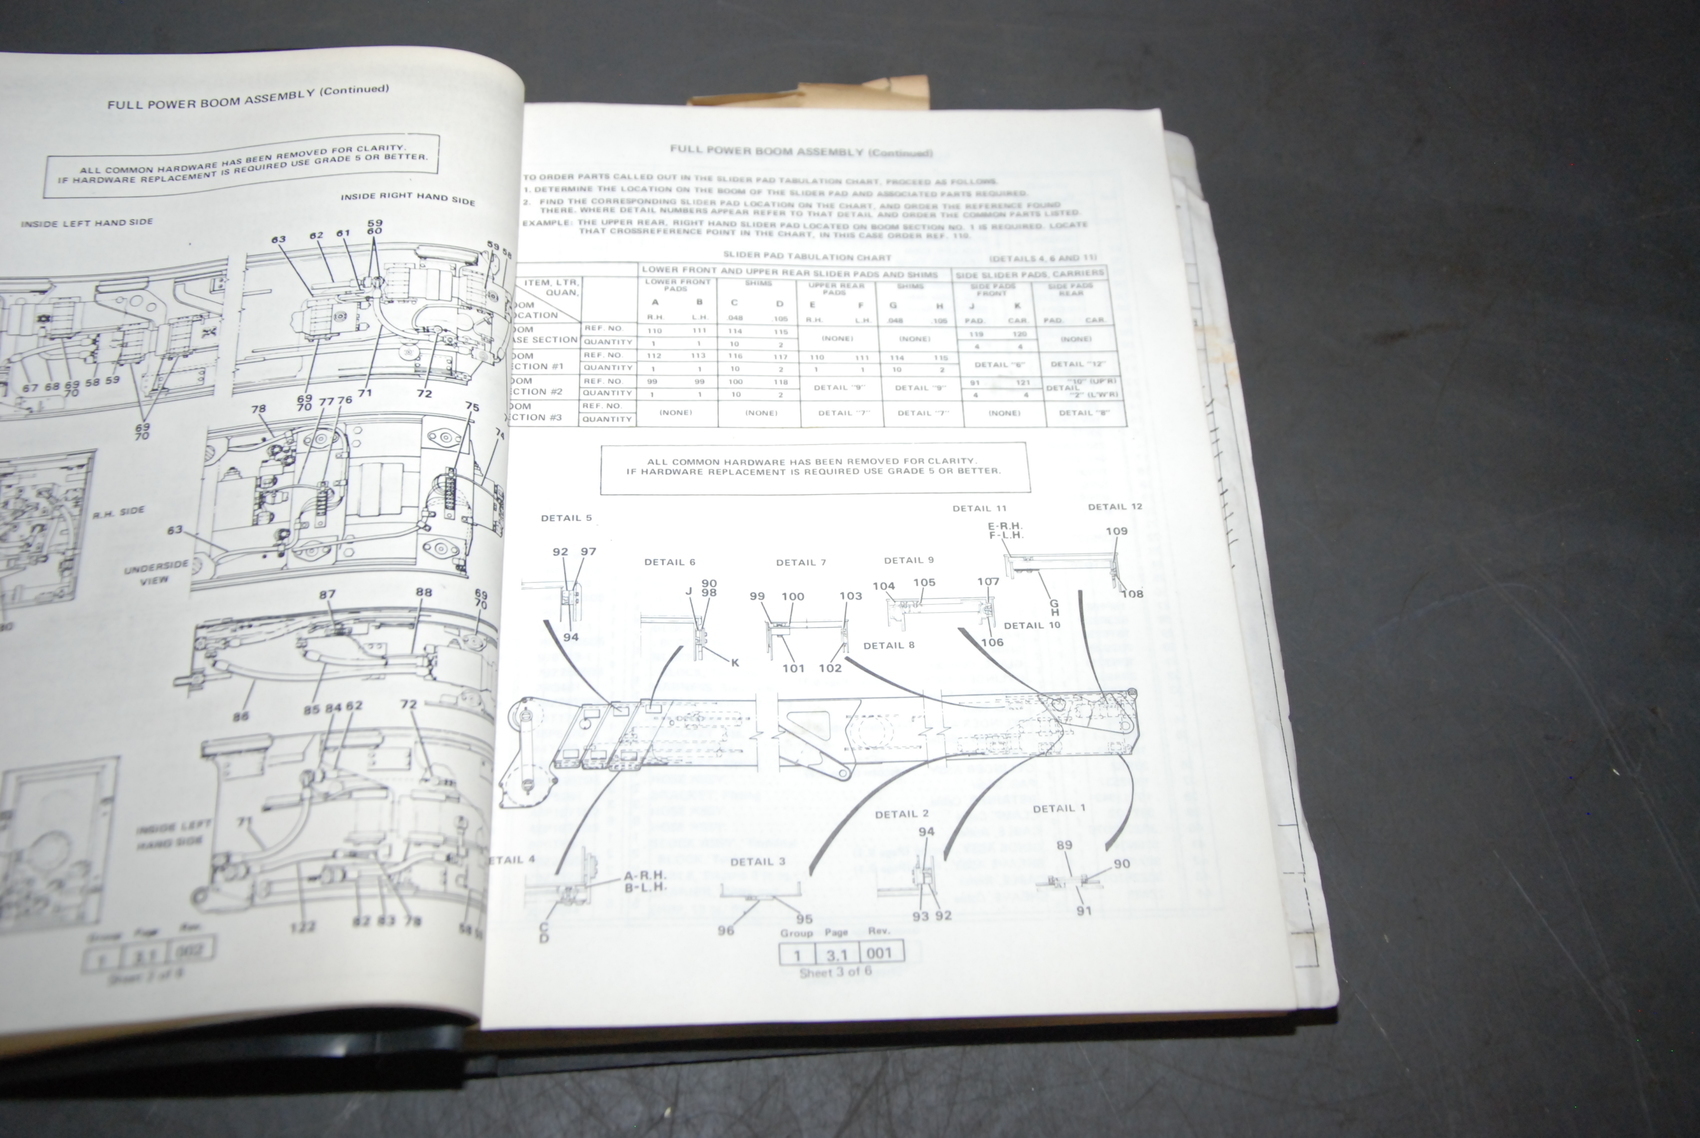 FULL POWER BOOM ASSEMBLY (Continued)
ALL COMMON HARDWARE HAS BEEN REMOVED FOR CLARITY.
IF HARDWARE REPLACEMENT IS REQUIRED USE GRADE 5 OR BETTER.
INSIDE LEFT HAND SIDE
INSIDE RIGHT HAND SIDE
63 62 61 59 60 59 58
67 68 69 70 58 59
69 70
69 70 71 72
78 77 76 75 74
R.H. SIDE
63
UNDERSIDE
VIEW
87 88 69 70
86 85 84 62 72
INSIDE LEFT
HAND SIDE
71
122 82 83 78 58
Group Page Rev.
1 3.1 002
Sheet 2 of 6
FULL POWER BOOM ASSEMBLY (Continued)
TO ORDER PARTS CALLED OUT IN THE SLIDER PAD TABULATION CHART, PROCEED AS FOLLOWS.
1. DETERMINE THE LOCATION ON THE BOOM OF THE SLIDER PAD AND ASSOCIATED PARTS REQUIRED.
2. FIND THE CORRESPONDING SLIDER PAD LOCATION ON THE CHART, AND ORDER THE REFERENCE FOUND
THERE. WHERE DETAIL NUMBERS APPEAR REFER TO THAT DETAIL AND ORDER THE COMMON PARTS LISTED.
EXAMPLE: THE UPPER REAR, RIGHT HAND SLIDER PAD LOCATED ON BOOM SECTION NO. 1 IS REQUIRED. LOCATE
THAT CROSSREFERENCE POINT IN THE CHART, IN THIS CASE ORDER REF. 110.
SLIDER PAD TABULATION CHART (DETAILS 4, 6 AND 11)
LOWER FRONT AND UPPER REAR SLIDER PADS AND SHIMS SIDE SLIDER PADS, CARRIERS
ITEM, LTR, LOWER FRONT PADS SHIMS UPPER REAR PADS SHIMS SIDE PADS FRONT SIDE PADS REAR
QUAN,
OOM A B C D E F G H J K
OCATION R.H. L.H. .048 .105 R.H. L.H. .048 .105 PAD. CAR. PAD. CAR.
OOM REF. NO. 110 111 114 115 (NONE) (NONE) 119 120 (NONE)
ASE SECTION QUANTITY 1 1 10 2 4 4
OOM REF. NO. 112 113 116 117 110 111 114 115 DETAIL "6" DETAIL "12"
CTION #1 QUANTITY 1 1 10 2 1 1 10 2
OOM REF. NO. 99 99 100 118 DETAIL "9" DETAIL "9" 91 121 DETAIL "10" (UP'R)
CTION #2 QUANTITY 1 1 10 2 4 4 "2" (L'W'R)
OOM REF. NO. (NONE) (NONE) DETAIL "7" DETAIL "7" (NONE) DETAIL "8"
CTION #3 QUANTITY
ALL COMMON HARDWARE HAS BEEN REMOVED FOR CLARITY.
IF HARDWARE REPLACEMENT IS REQUIRED USE GRADE 5 OR BETTER.
DETAIL 5
92 97
94
DETAIL 6
J 90 98
K
DETAIL 7
99 100 103
101 102
DETAIL 8
DETAIL 9
104 105 107
106
DETAIL 10
DETAIL 11
E-R.H.
F-L.H.
G
H
DETAIL 12
109
108
ETAIL 4
A-R.H.
B-L.H.
C
D
DETAIL 3
96 95
DETAIL 2
94
93 92
DETAIL 1
89 90
91
Group Page Rev.
1 3.1 001
Sheet 3 of 6